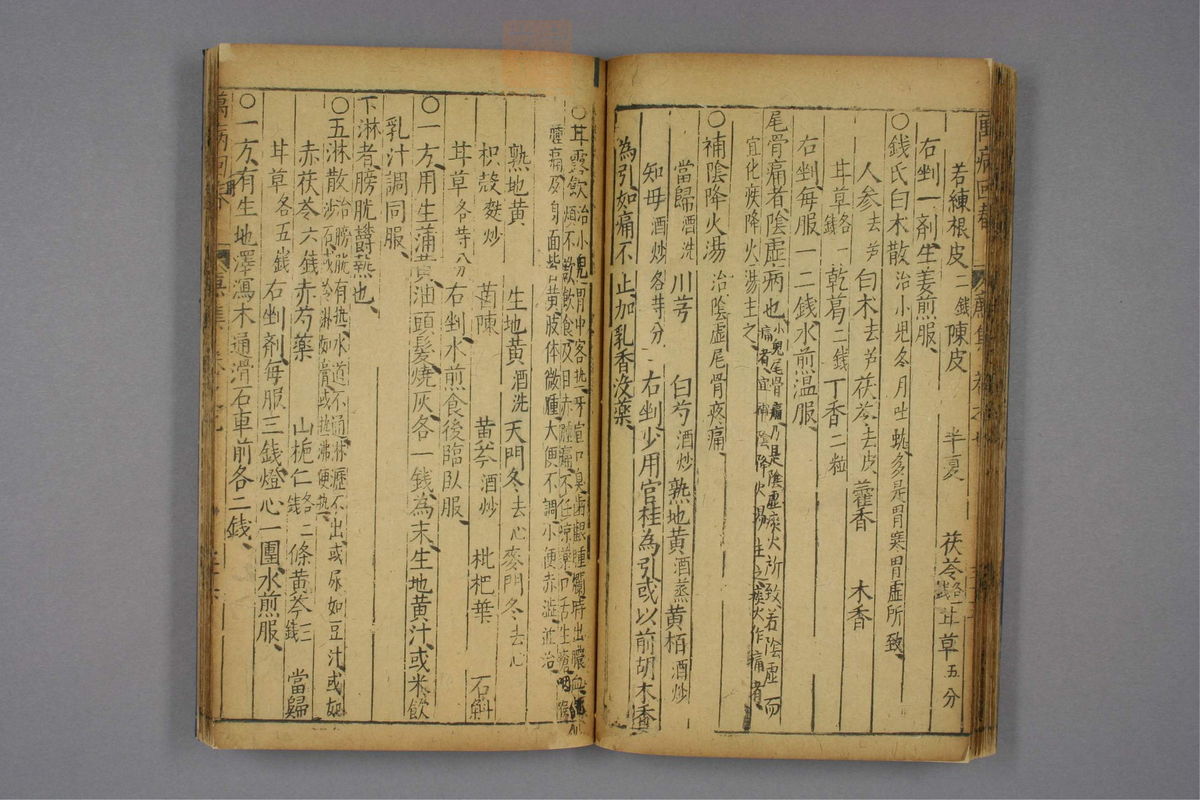 苦練根皮二錢陳皮 半夏 茯苓各一錢甘草五分
右剉一劑生姜煎服
○錢氏白木散治小児冬月吐蚘多是胃寒胃虛所致
人参去芦 白木去芦 茯苓去皮 藿香 木香
甘草各一錢 乾葛二錢 丁香二粒
右剉每服一二錢水煎温服
尾骨痛者陰虛病也小兒尾骨痛乃是陰虛痰火所致若陰虛而
痛者宜補陰降火湯主之痰火作痛者
宜化痰降火湯主之
○補陰降火湯 治陰虛尾骨疼痛
當歸酒洗 川芎 白芍酒炒 熟地黃酒蒸 黃栢酒炒
知母酒炒各等分 右剉少用官桂為引或以前胡木香
為引如痛不止加乳香没藥
○甘露飲治小兒胃中客热牙宣口臭齒齦腫爛時出膿血
煩不欲飲食及目赤腫痛不任凉藥口舌生瘡咽喉
腫痛及身面皆黃肢体微腫大便不調小便赤澁並治
熟地黃 生地黃酒洗 天門冬去心 麥門冬去心
枳殼麩炒 茵陳 黃芩酒炒 枇杷葉 石斛
甘草各等分 右剉水煎食後臨臥服
○一方用生蒲黃油頭髮燒灰各一錢為末生地黃汁或米飲
乳汁調同服
下淋者膀胱欝热也
○五淋散治膀胱有热水道不通淋瀝不出或尿如豆汁或如
赤茯苓六錢赤芍藥 山梔仁各二錢條黃芩三錢 當歸
甘草各五錢 右剉劑每服三錢燈心一團水煎服
○一方有生地澤瀉木通滑石車前各二錢
萬病回春